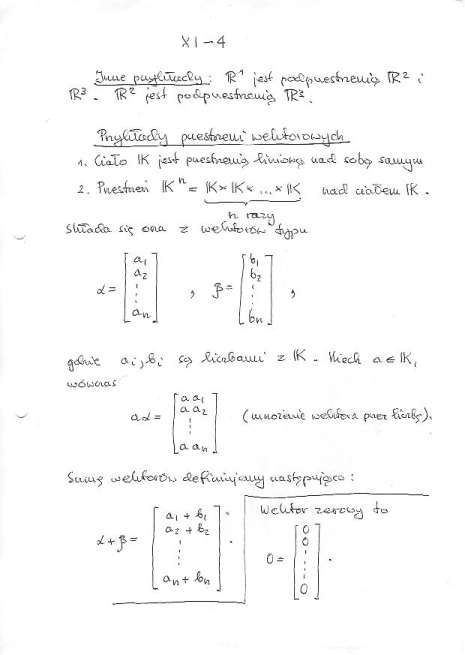 XI-4
Inne przykłady: ℝ¹ jest podprzestrzenią ℝ² i
ℝ³. ℝ² jest podprzestrzenią ℝ³.
Przykłady przestrzeni wektorowych
1. Ciało 𝕂 jest przestrzenią liniową nad sobą samym
2. Przestrzeń 𝕂ⁿ = 𝕂×𝕂×...×𝕂 nad ciałem 𝕂.
n razy
Składa się ona z wektorów typu
α = [a₁ a₂ ⋮ aₙ] , β = [b₁ b₂ ⋮ bₙ] ,
gdzie aᵢ, bᵢ są liczbami z 𝕂. Niech a ∈ 𝕂,
wówczas
aα = [a a₁ a a₂ ⋮ a aₙ] (mnożenie wektora przez liczbę).
Sumę wektorów definiujemy następująco:
α+β = [a₁ + b₁ a₂ + b₂ ⋮ aₙ + bₙ] .
Wektor zerowy to
0 = [0 0 ⋮ 0] .